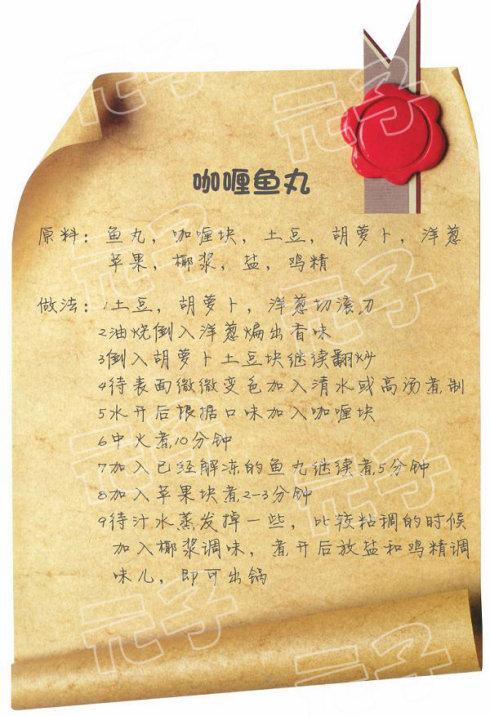 咖喱鱼丸
原料：鱼丸，咖喱块，土豆，胡萝卜，洋葱
苹果，椰浆，盐，鸡精
做法：1土豆，胡萝卜，洋葱切滚刀
2油烧倒入洋葱煸出香味
3倒入胡萝卜土豆块继续翻炒
4待表面微微变色加入清水或高汤煮制
5水开后根据口味加入咖喱块
6中火煮10分钟
7加入已经解冻的鱼丸继续煮5分钟
8加入苹果块煮2-3分钟
9待汁水蒸发掉一些，比较粘调的时候
加入椰浆调味，煮开后放盐和鸡精调
味儿，即可出锅
元子
元子
元子
元子
元子
元子
元子
元子
元子
元子